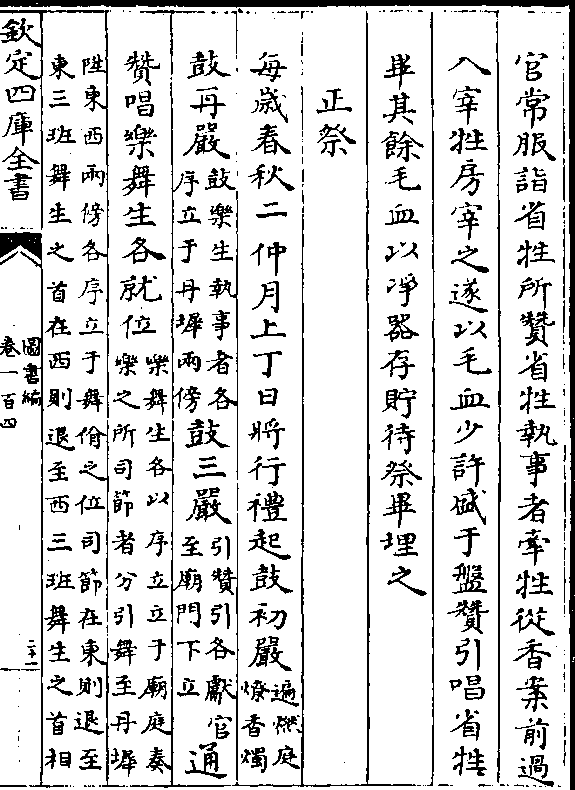 官常服詣省牲所贊省牲執事者牽牲從香案前過
入宰牲房宰之遂以毛血少許盛于盤贊引唱省牲
畢其餘毛血以淨器存貯待祭畢埋之
正祭
每歲春秋二仲月上丁日將行禮起鼓初嚴遍燃庭燎香燭
鼓再嚴鼓樂生執事者各序立于丹墀兩傍鼓三嚴引贊引各獻官至廟門下立通
贊唱樂舞生各就位樂舞生各以序立立于廟庭奏樂之所司節者分引舞至丹墀
陛東西兩傍各序立于舞佾之位司節在東則退至
東三班舞生之首在西則退至西三班舞生之首相
欽定四庫全書
圖書編
卷一百四